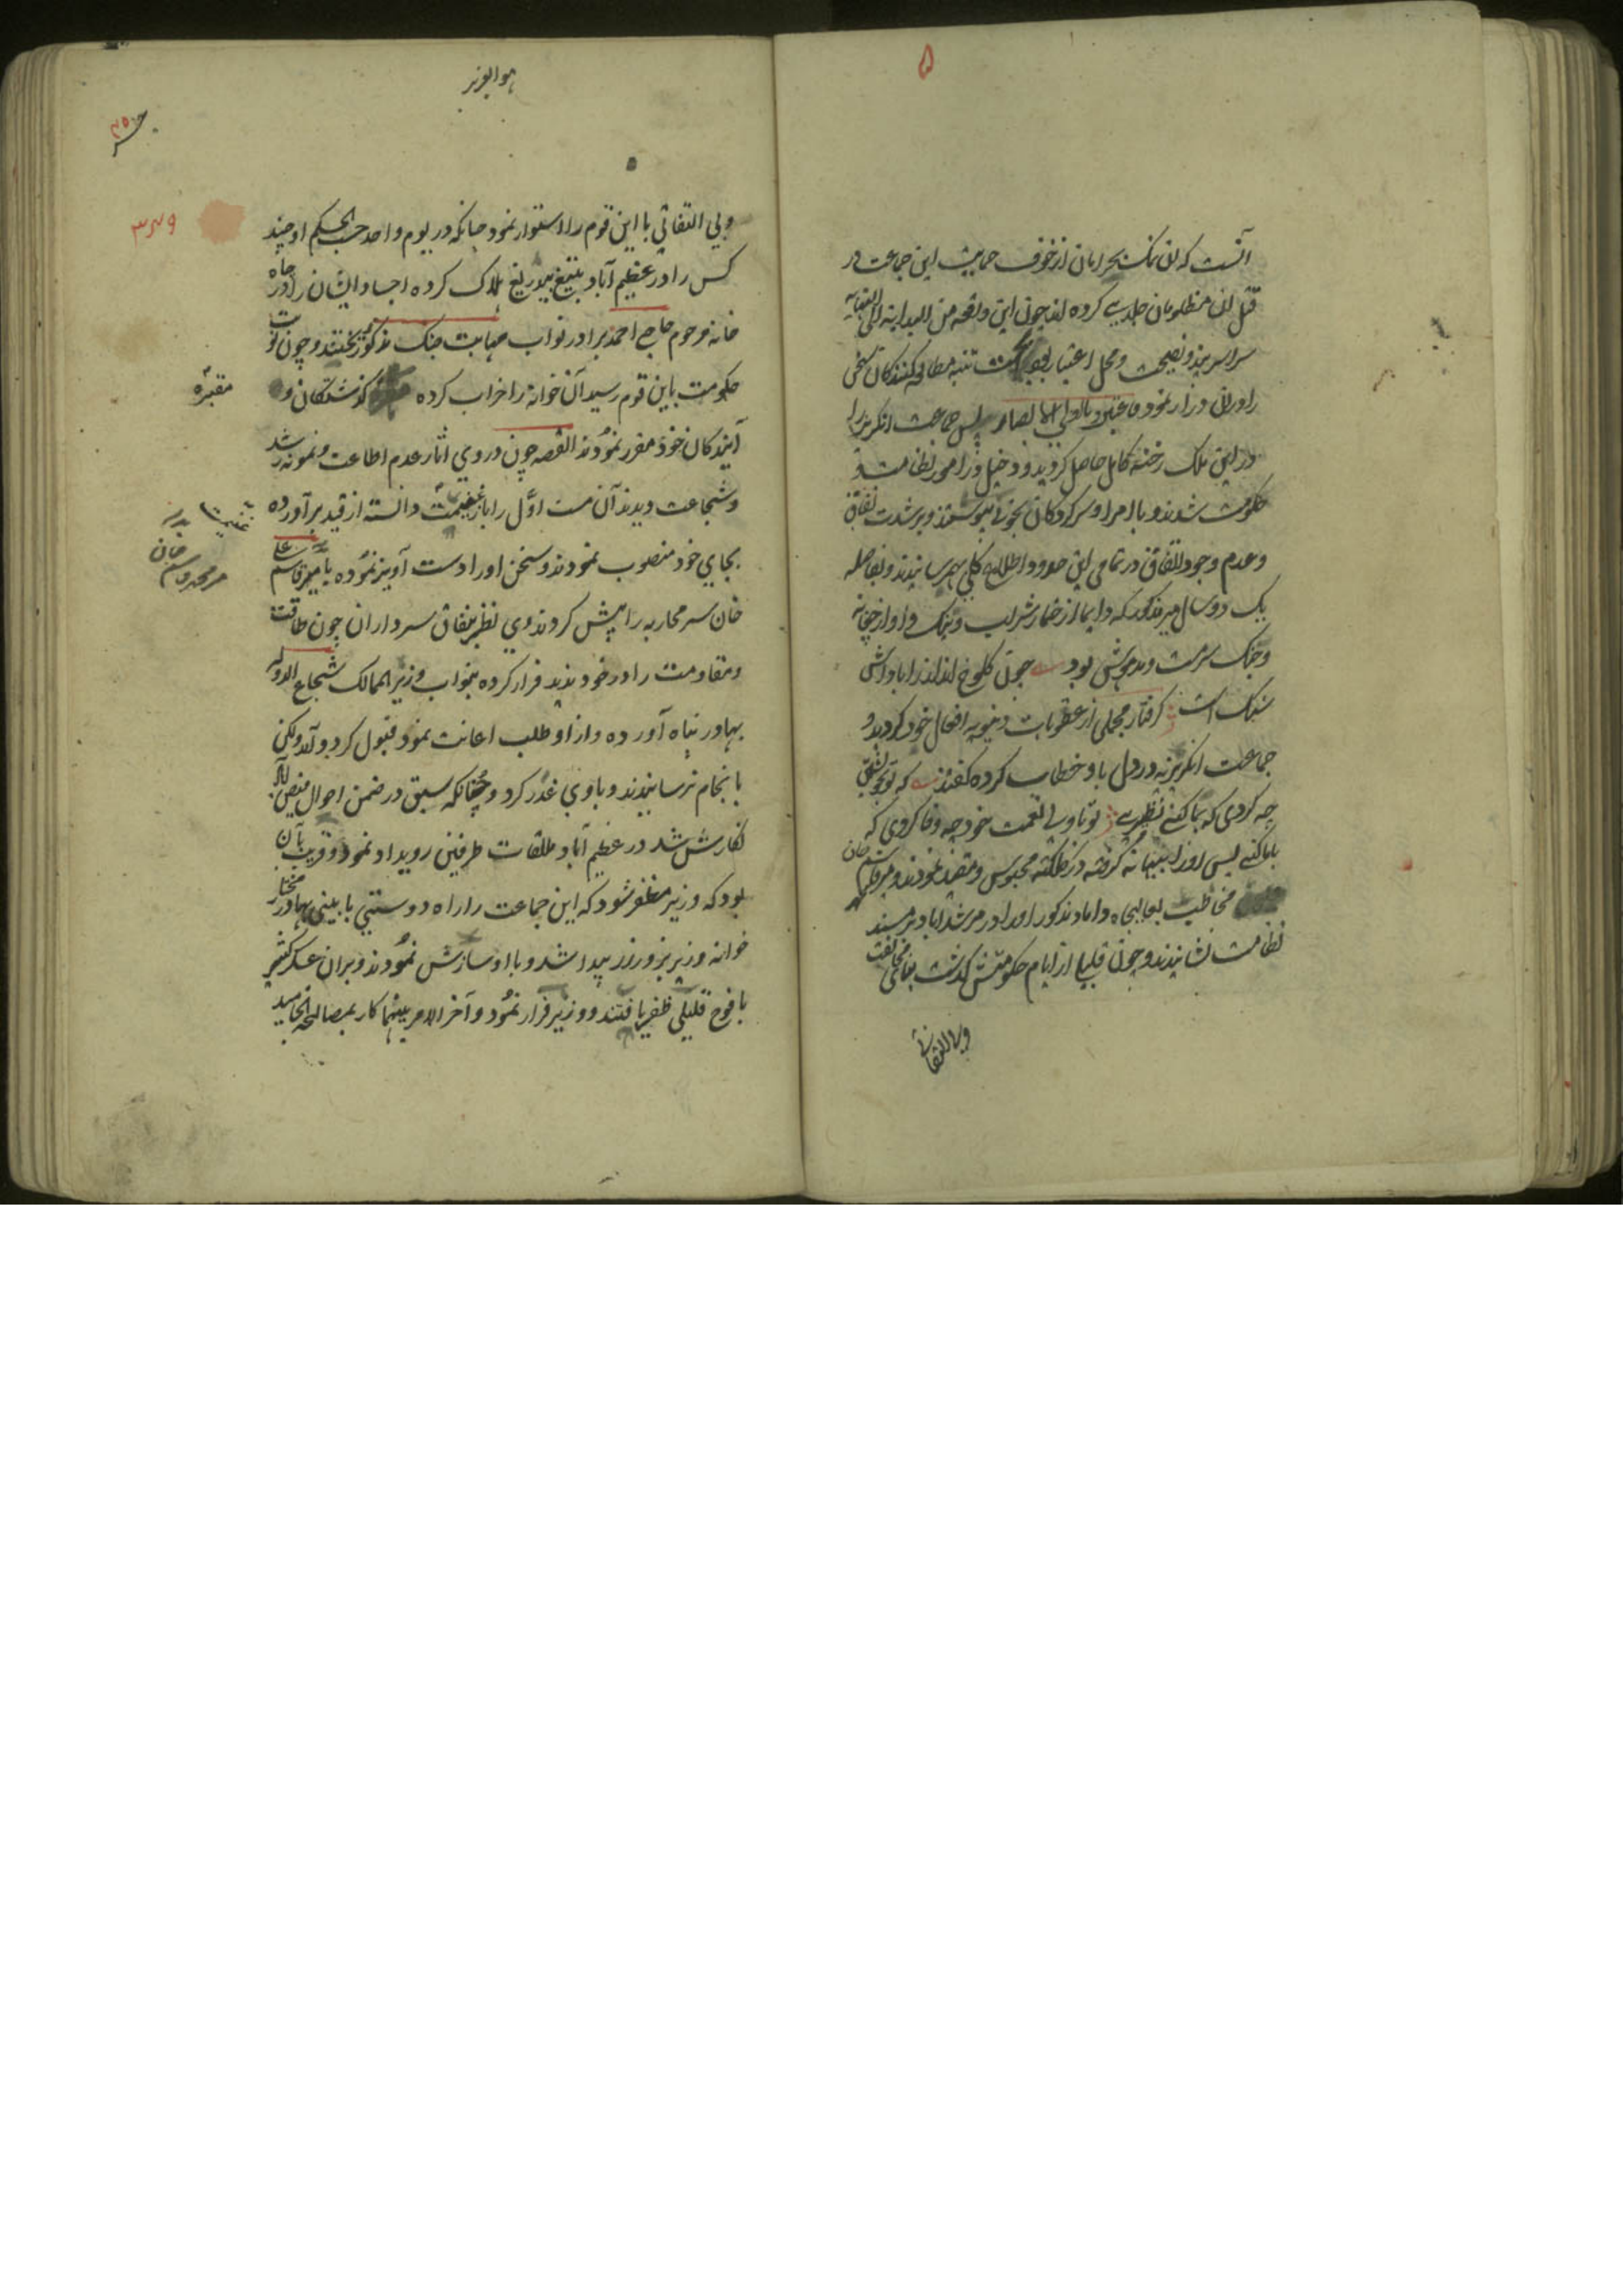 آنست که این نمک بحرامان از خوف حمایت این جماعت در
قتل این مظلومان جلدی کرده اند چون این واقعه من البدایه الی النهایه
سراسر پند و نصیحت و محل اعتبار تنبه مطالعه کنندکان سخن
را درین و را نمود فاعتبروا یا اولی الابصار پس جماعت انکریز را
در این ملک رخنه کامل حاصل کردید و دخیل در امور نظامت و
حکومت شدند و با امرا و سرکردکان بخوبی پیوستند و بر شدت نفاق
و عدم وجود اتفاق در تمامی این حدود اطلاع کلی بهم رسانیدند و بفاصله
یک دو سال میر مذکور که دایما از خمار شراب و بنک و اواز چغانه
و چنک سرمست و مدهوش بود چون کلوخ انداز را پاداش
سنک است کرفتار مجملی از عقوبات دنیویه افعال خود کردید و
جماعت انکریزیه در دل با و خطاب کرده کفتند که تو بخویشتن
چه کردی که بما کنی نظیری تو با ولی نعمت خود چه وفا کردی که
باما کنی پس او را کرفته در کلکته محبوس و مقید نمودند و میر قاسم خان
مخاطب بعالیجاه داماد مذکور او را در مرشداباد بر مسند
نظامت نشانیدند و چون قلیلی از ایام حکومتش کذشت بنای مخالفت
وبی التفاتی
هو العزیز
وبی التفاتی با این قوم را استوار نمود چنانکه در یوم واحد حسب الحکم او چند
کس را در عظیم آباد بتیغ بیدریغ هلاک کرده اجساد ایشان را در چاه
خانه مرحوم حاجی احمد برادر نواب مهابت جنک مذکور ریختند و چون نوبت
حکومت باین قوم رسید آن خوانه را خراب کرده کذشتکان و
مقبرهٔ
آیندکان خود مقرر نمودند القصه چون در وی آثار عدم اطاعت و نمونه رشد
و شجاعت دیدند آن مست اول را باز غنیمت دانسته از قید برآورده
غنیمت
بجای خود منصوب نمودند و سخن او را دست آویز نموده با میر قاسم علی
خان سر محاربه را پیش کردند وی نظر بنفاق سرداران چون طاقت
و مقاومت را در خود ندید فرار کرده بنواب وزیر الممالک شجاع الدوله
بهادر پناه آورده و از او طلب اعانت نمود قبول کرد و آمد ولکن
بانجام نرسانیدند و با وی غدر کرد و چنانکه سبق در ضمن احوال فیض آباد
نکارش شد در عظیم آباد ملاقات طرفین رویداد نمود و قریب بآن
بود که وزیر مظفر شود که این جماعت را راه دوستی با بینی بهادر مختار
خوانه وزیر بزور زر پیدا شد و با او سازش نمودند و بران عسکر کثیر
با فوج قلیلی ظفر یافتند و وزیر فرار نمود و آخر الامر بینهما کار بمصالحه انجامید